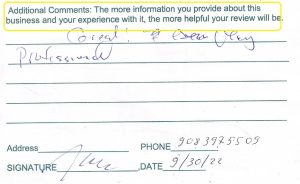 Additional Comments: The more information you provide about this
business and your experience with it, the more helpful your review will be.
Great!
Professional
Address PHONE 9083975509
SIGNATURE DATE 9/30/22